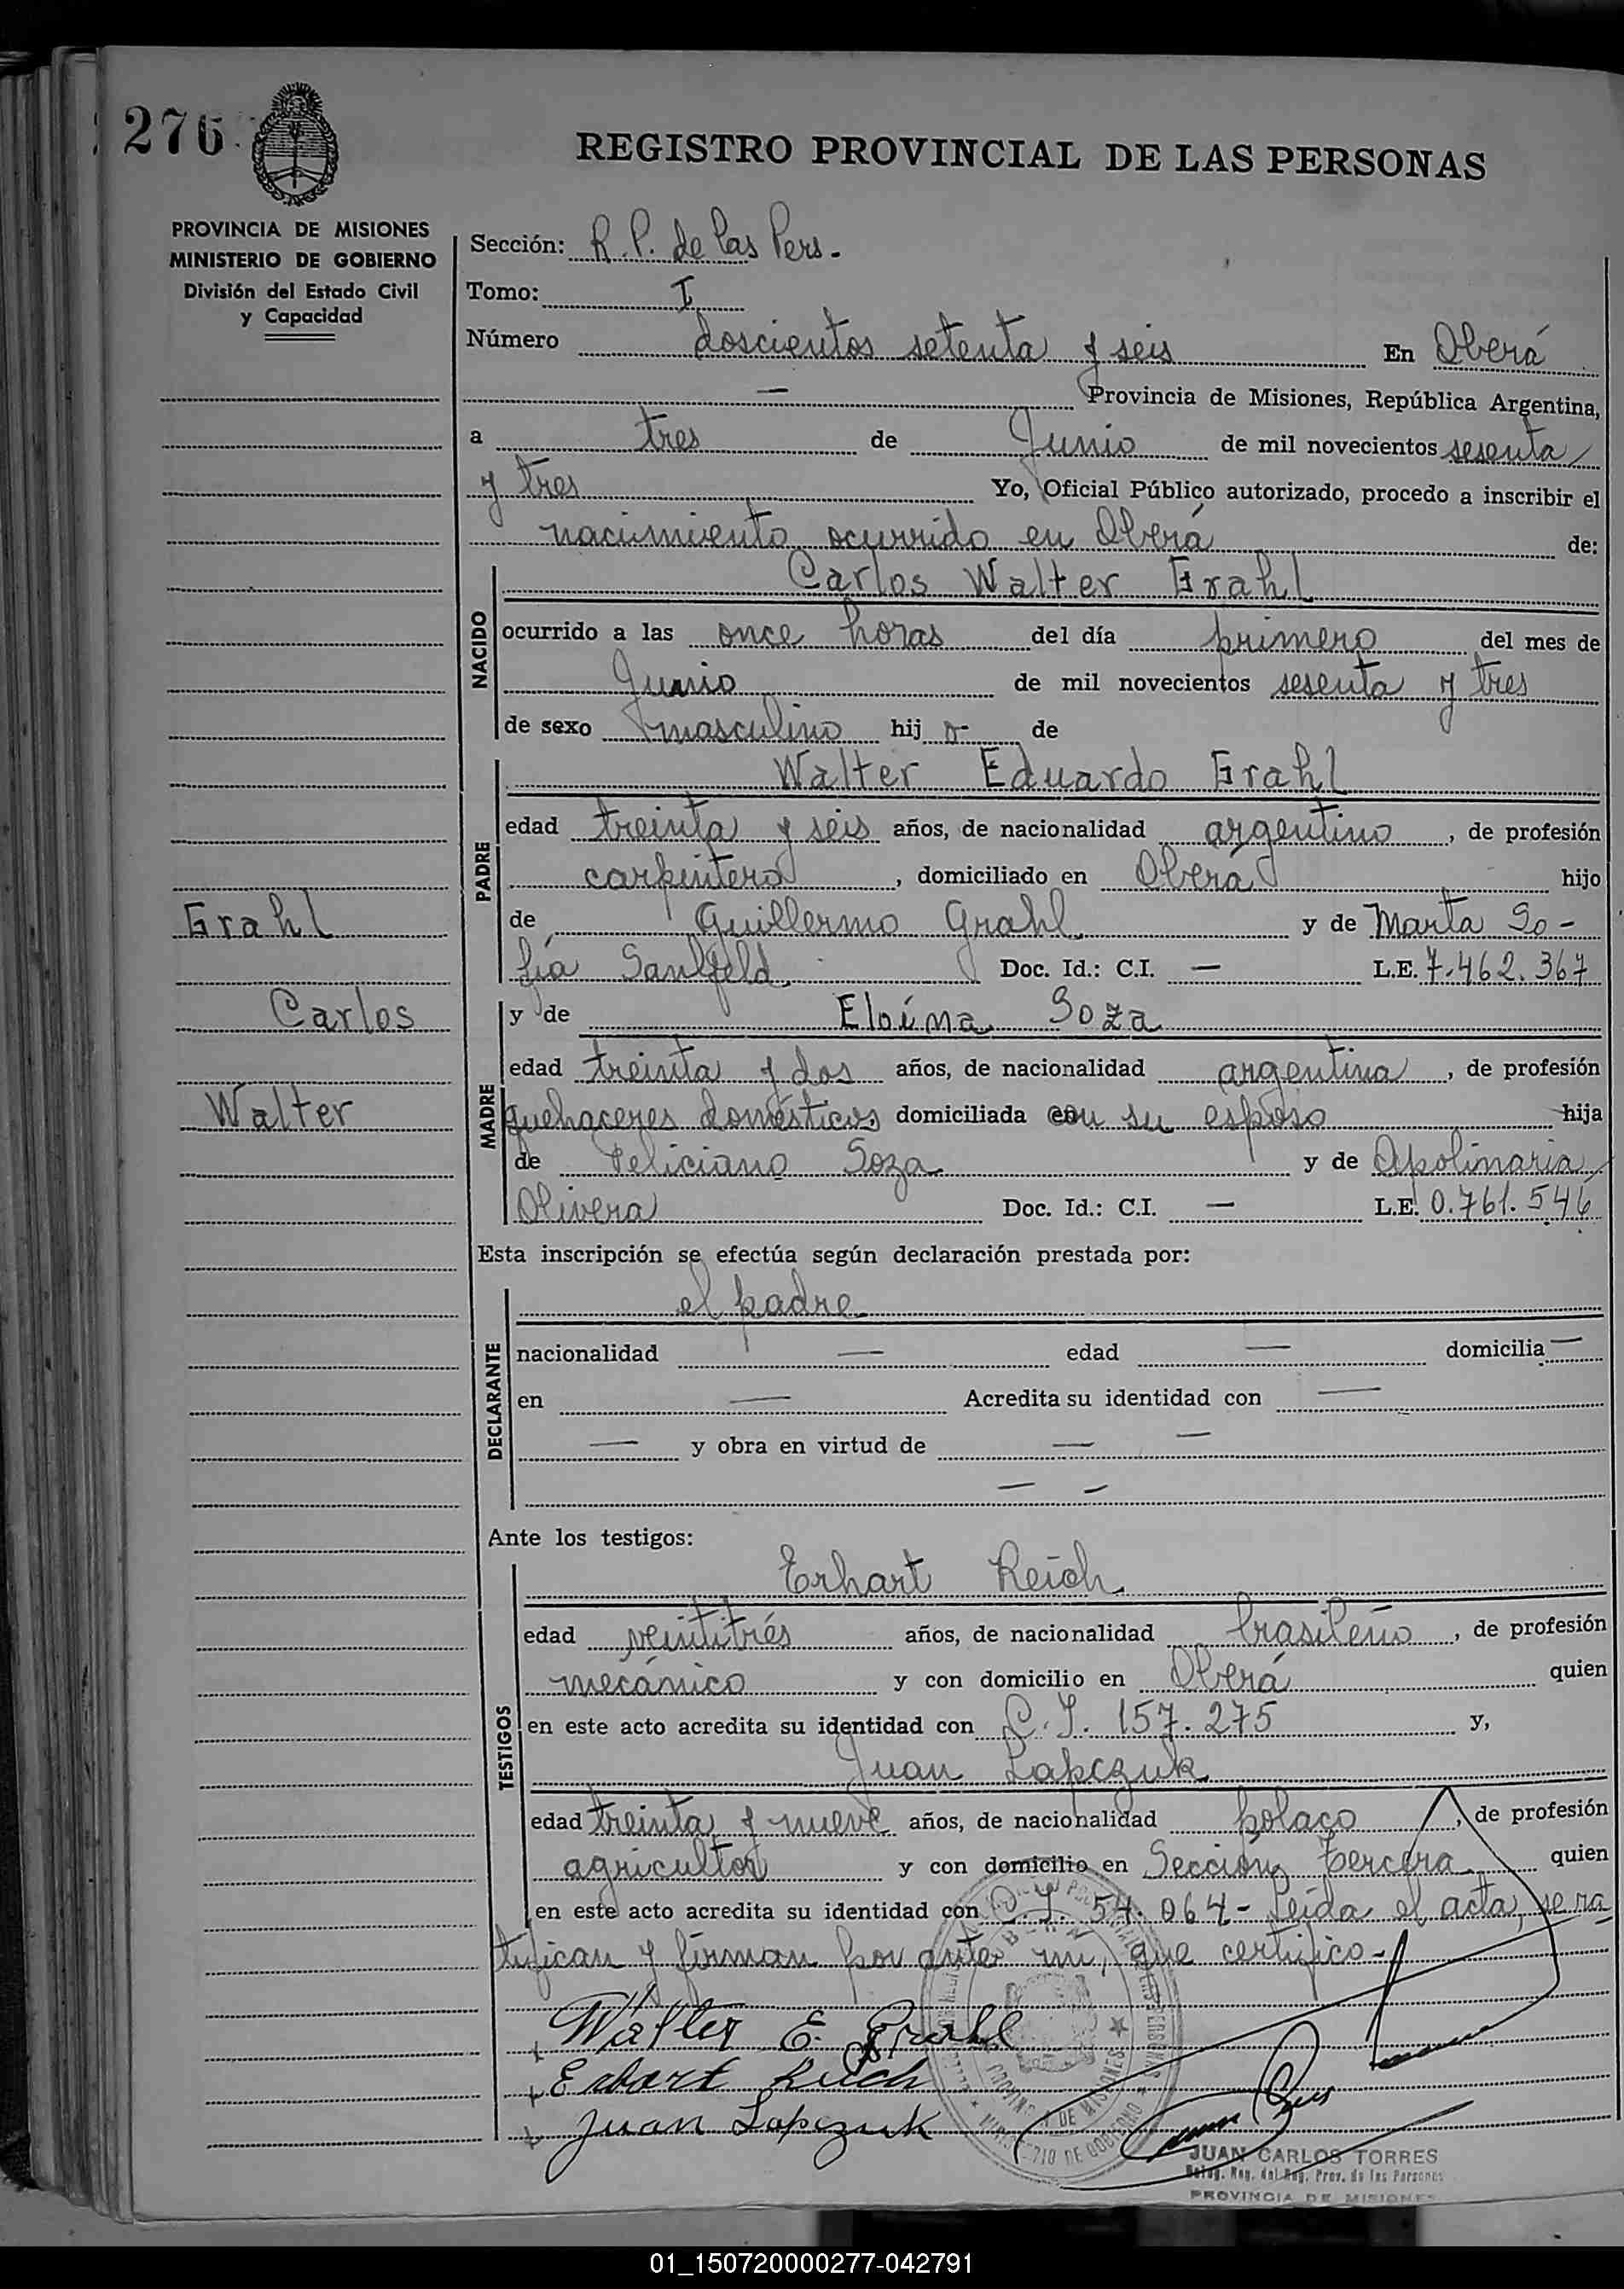 276
REGISTRO PROVINCIAL DE LAS PERSONAS
PROVINCIA DE MISIONES
MINISTERIO DE GOBIERNO
División del Estado Civil
y Capacidad
Sección: R.P. de las Pers.
Tomo: I
Número doscientos setenta y seis En Oberá
— Provincia de Misiones, República Argentina,
a tres de Junio de mil novecientos sesenta
y tres Yo, Oficial Público autorizado, procedo a inscribir el
nacimiento ocurrido en Oberá de:
NACIDO
Carlos Walter Grahl
ocurrido a las once horas del día primero del mes de
Junio de mil novecientos sesenta y tres
de sexo masculino hijo de
PADRE
Walter Eduardo Grahl
edad treinta y seis años, de nacionalidad argentino, de profesión
carpintero, domiciliado en Oberá hijo
Grahl
de Guillermo Grahl y de Marta So-
fía Sanlfeld. Doc. Id.: C.I. — L.E. 7.462.367
Carlos
MADRE
y de Eloína Soza
edad treinta y dos años, de nacionalidad argentina, de profesión
Walter
quehaceres domésticos domiciliada con su esposo hija
de Feliciano Soza y de Apolinaria
Olivera Doc. Id.: C.I. — L.E. 0.761.546
Esta inscripción se efectúa según declaración prestada por:
DECLARANTE
el padre
nacionalidad — edad — domicilia —
en — Acredita su identidad con —
— y obra en virtud de — —
— —
Ante los testigos:
TESTIGOS
Erhart Reich
edad veintitrés años, de nacionalidad brasileño, de profesión
mecánico y con domicilio en Oberá quien
en este acto acredita su identidad con C.I. 157.275 y,
Juan Lapczuk
edad treinta y nueve años, de nacionalidad polaco, de profesión
agricultor y con domicilio en Sección Tercera quien
en este acto acredita su identidad con C.I. 54.064 - Leída el acta, se ra
tifican y firman por ante mi, que certifico -
Walter E. Grahl
Erhart Reich
Juan Lapczuk
PROVINCIA DE MISIONES
MINISTERIO DE GOBIERNO
JUAN CARLOS TORRES
Deleg. Reg. del Reg. Prov. de las Personas
PROVINCIA DE MISIONES
01_150720000277-042791